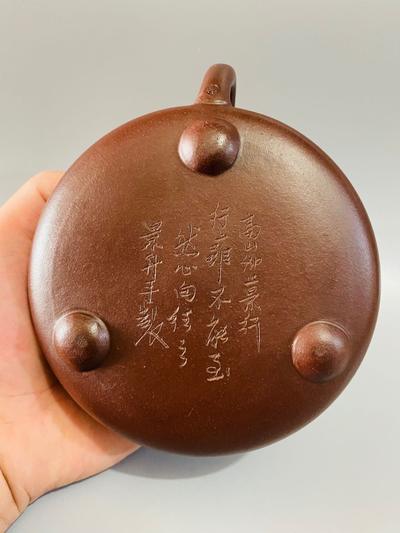 高山仰景行
行雖不能至
然心向往之
景舟手製